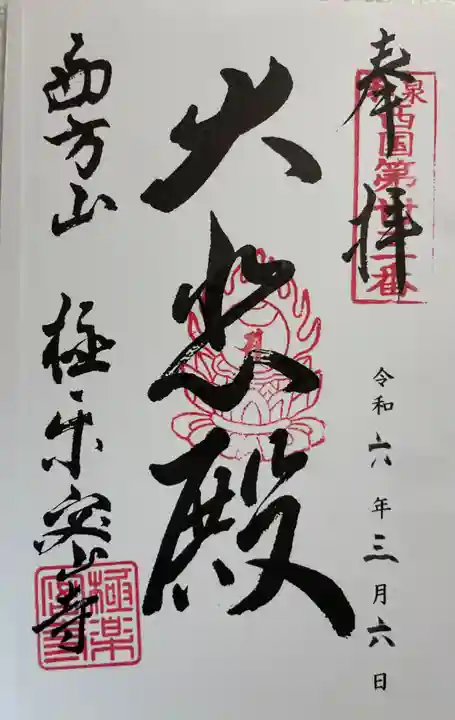 奉拝
泉西国第廿二番
令和六年三月六日
大悲殿
西方山 極楽密寺
極楽